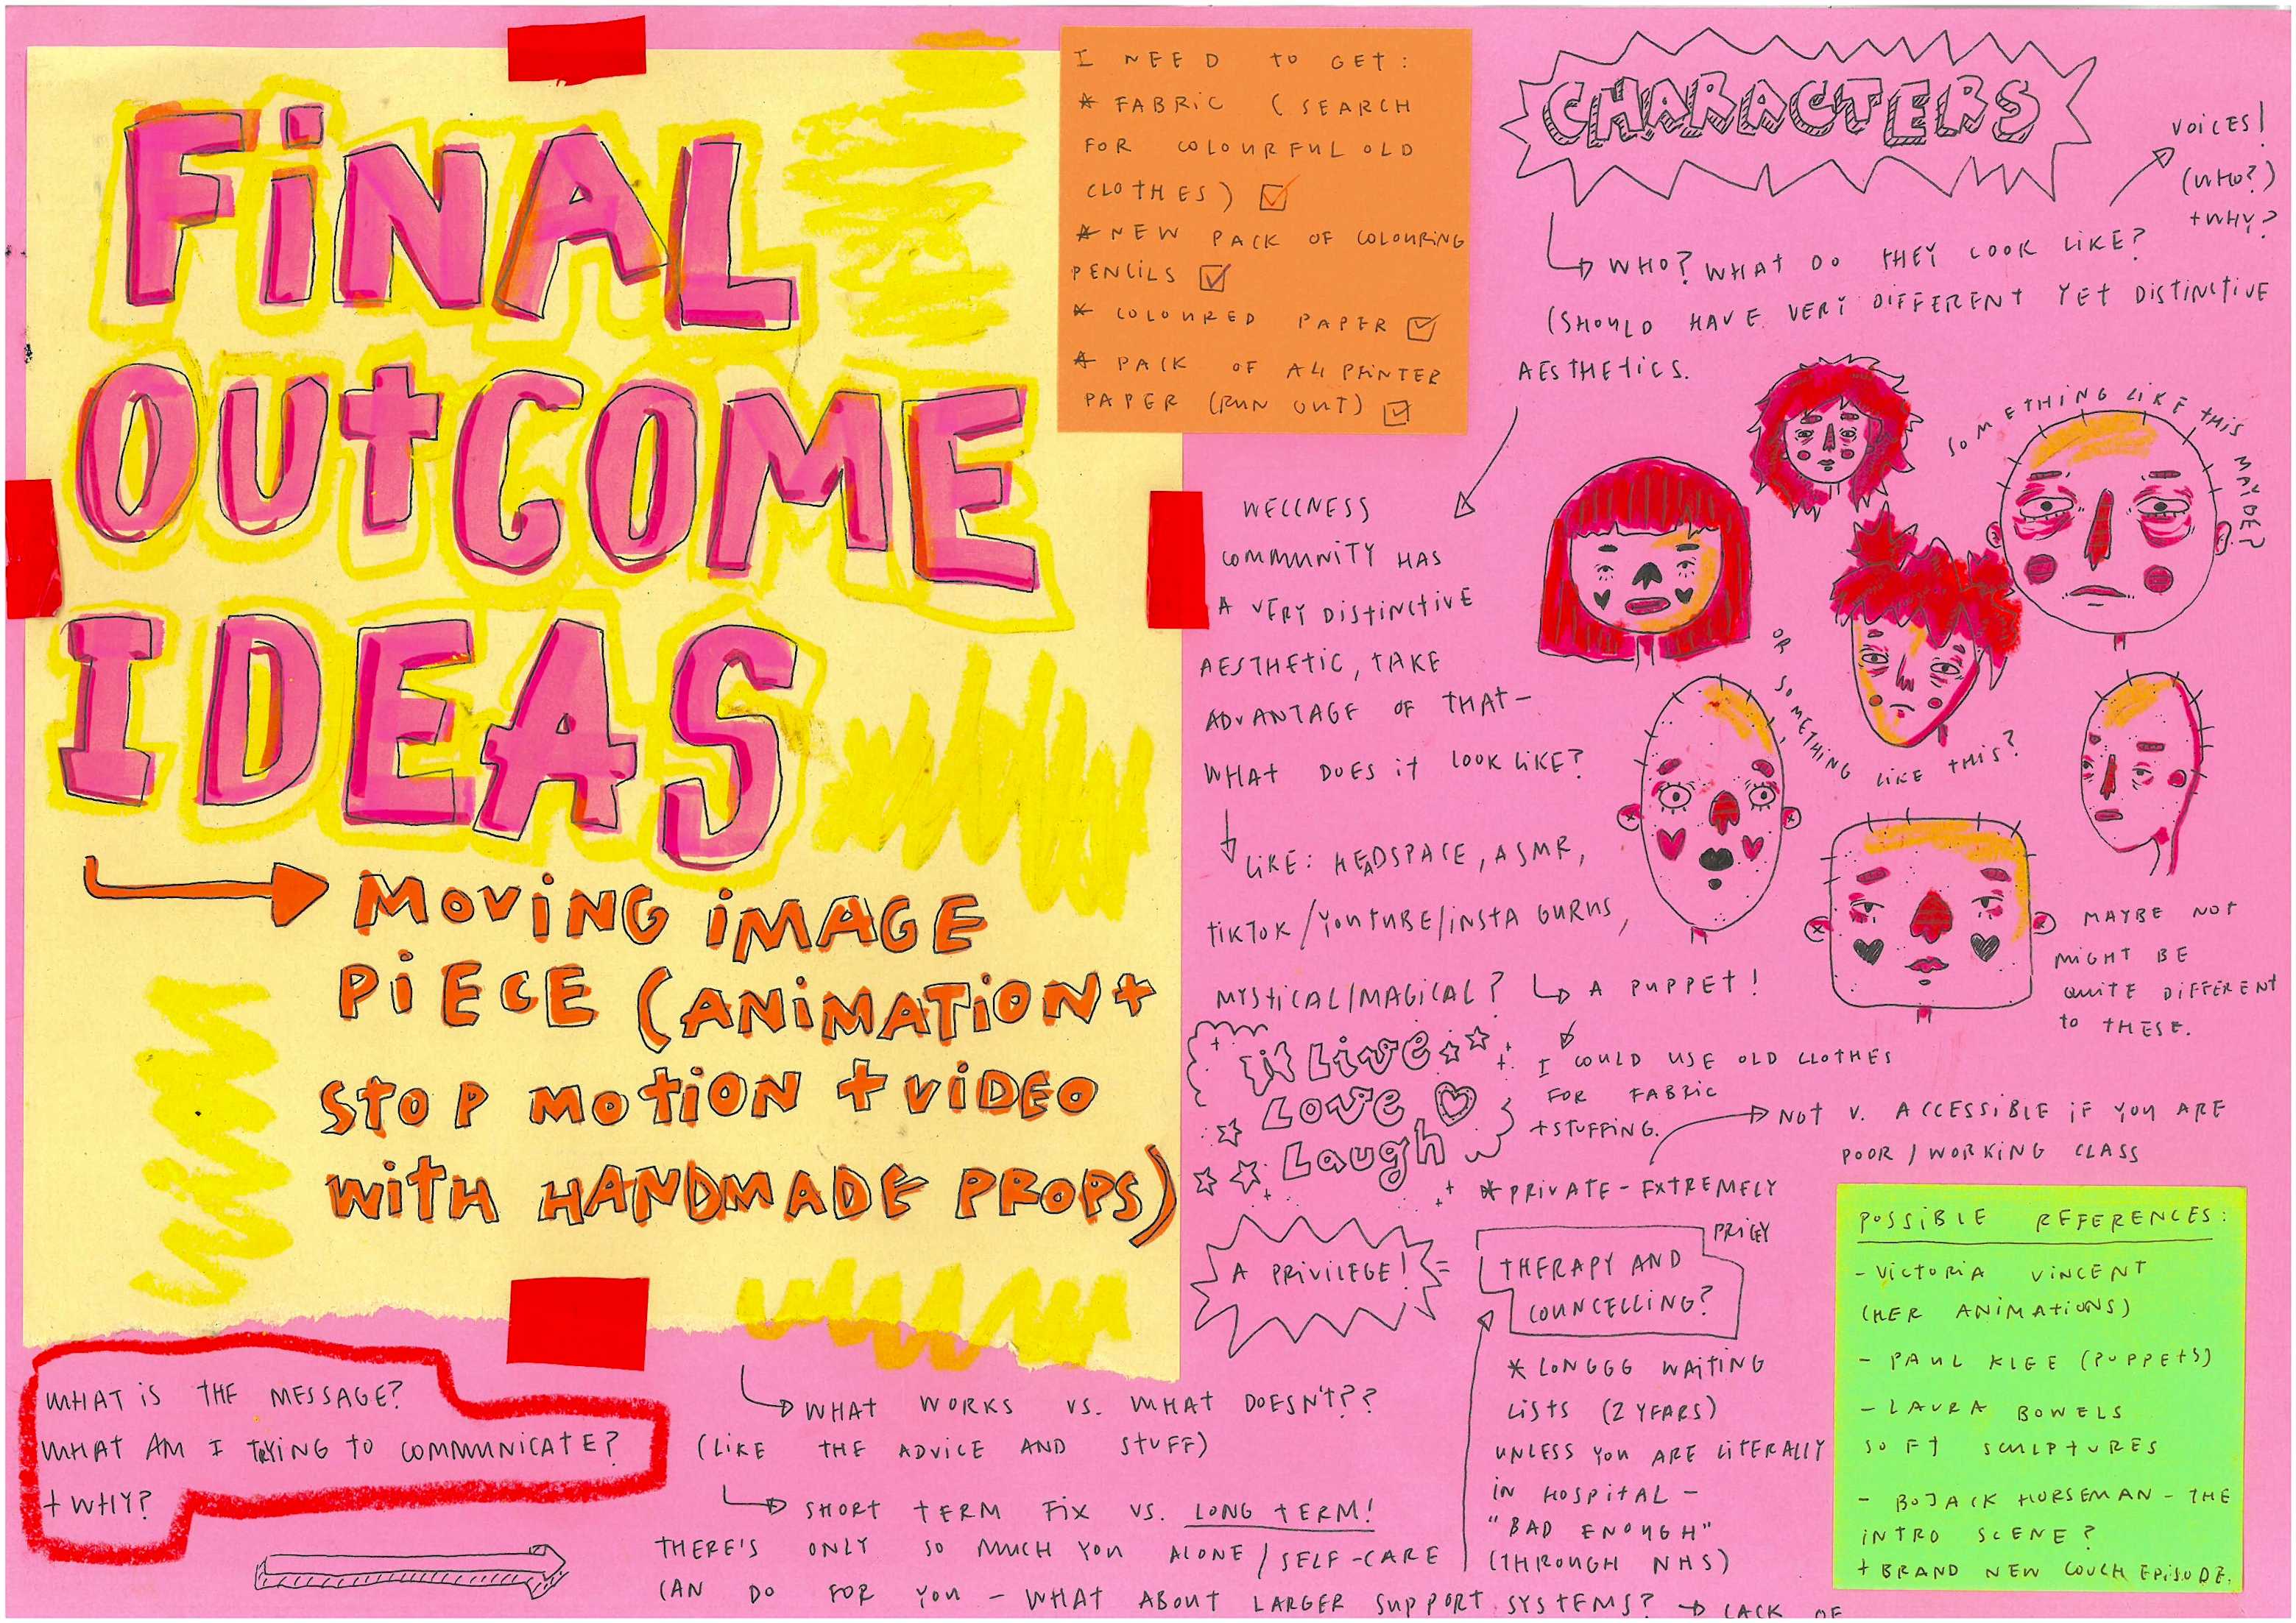 FiNAL
OUtCOME
IDEAS
MOViNG iMAGE
PiECE (ANiMATiON +
StOP MOtiON + ViDEO
WitH HANDMADE PROPS)
I NEED to GEt:
* FABRiC (SEARCH
FOR COLOURFUL OLD
CLOtHES)
* NEW PACK OF COLOURiNG
PENCiLS
* COLOURED PAPER
* PACK OF A4 PRiNTER
PAPER (RUN OUT)
CHARACTERS
VOiCES!
(WHO?)
+ WHY?
WHO? WHAt DO tHEY LOOK LiKE?
(SHOULD HAVE VERY DiFFERENt YEt DiStiNCtiVE
AESTHEtiCS.
SOMETHiNG LiKE tHiS MAYBE?
OR SOMETHiNG LiKE tHiS?
WELLNESS
COMMUNiTY HAS
A VERY DiStiNCtiVE
AESTHEtiC, TAKE
ADVANTAGE OF tHAt -
WHAt DOES it LOOK LiKE?
LiKE: HEADSPACE, ASMR,
tiKTOK/YOUtUBE/iNStA GURUS,
MYStiCAL/MAGiCAL?
A PUPPEt!
MAYBE NOt
MiGHt BE
QUitE DiFFERENT
to tHESE.
I COULD USE OLD CLOtHES
FOR FABRiC
+ STUFFiNG.
Live
Love
Laugh
NOt V. ACCESSiBLE iF YOU ARE
POOR/WORKiNG CLASS
* PRiVAtE - EXTREMELY
PRiCEY
A PRiViLEGE! =
tHERAPY AND
COUNCELLiNG?
* LONGGG WAiTiNG
LiStS (2 YEARS)
UNLESS YOU ARE LitERALLY
iN HOSPitAL -
"BAD ENOUGH"
(tHROUGH NHS)
POSSiBLE REFERENCES:
- ViCtORiA ViNCENT
(HER ANiMAtiONS)
- PAUL KLEE (PUPPEtS)
- LAURA BOWELS
SOFt SCULPtURES
- BOJACK HORSEMAN - THE
iNtRO SCENE?
+ BRAND NEW COUCH EPiSODE.
WHAt iS tHE MESSAGE?
WHAt AM I tRYiNG tO COMMUNiCAtE?
+ WHY?
WHAt WORKS VS. WHAt DOESN't??
(LiKE tHE ADViCE AND StUFF)
SHORt tERM FiX VS. LONG tERM!
tHERE'S ONLY SO MUCH YOU ALONE/SELF-CARE
CAN DO FOR YOU - WHAt ABOUt LARGER SUPPORt SYSTEMS? → LACK OF